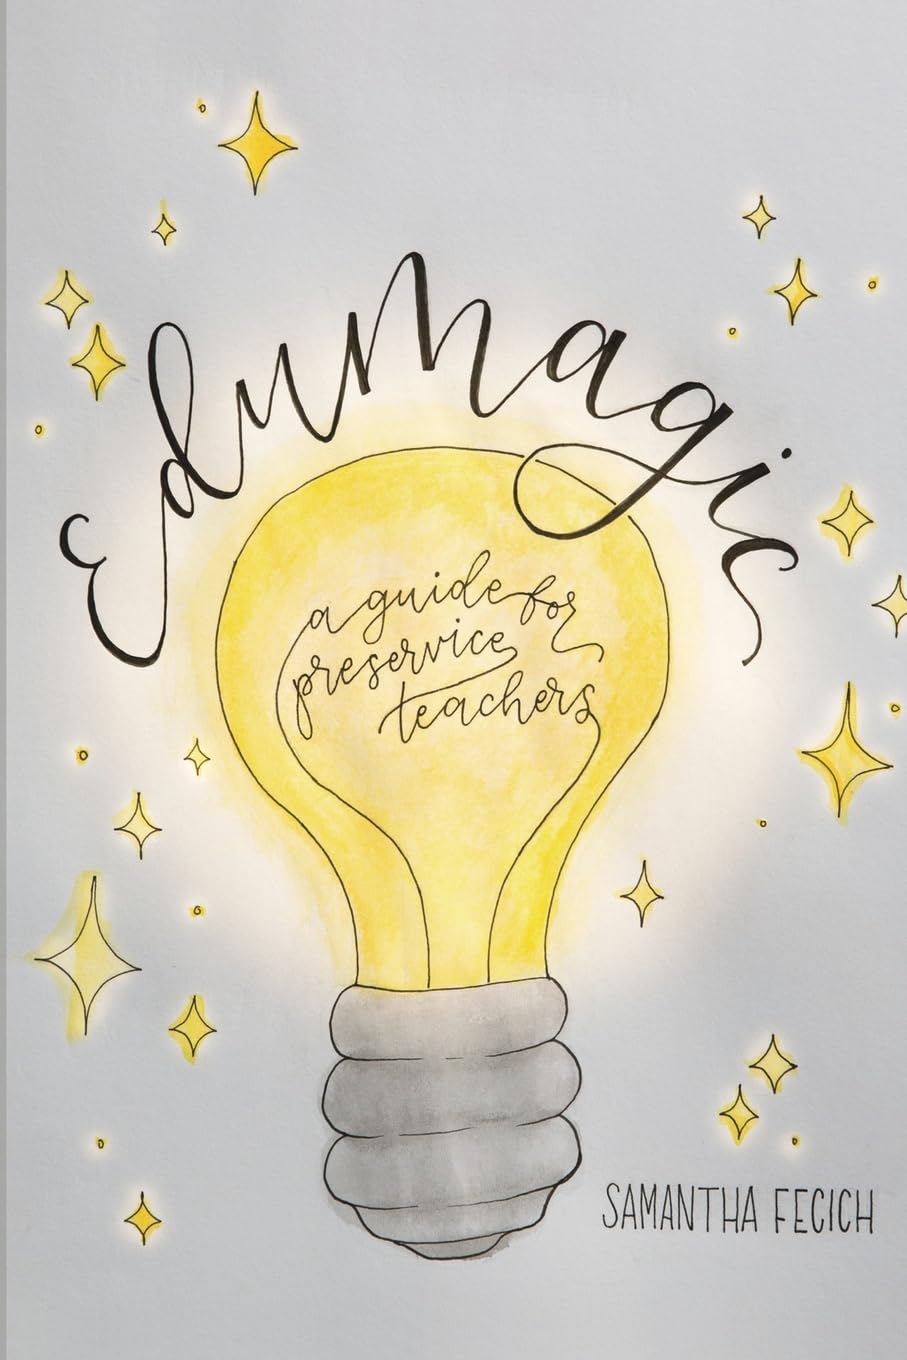 EduMagic
a guide for
preservice
teachers
SAMANTHA FECICH